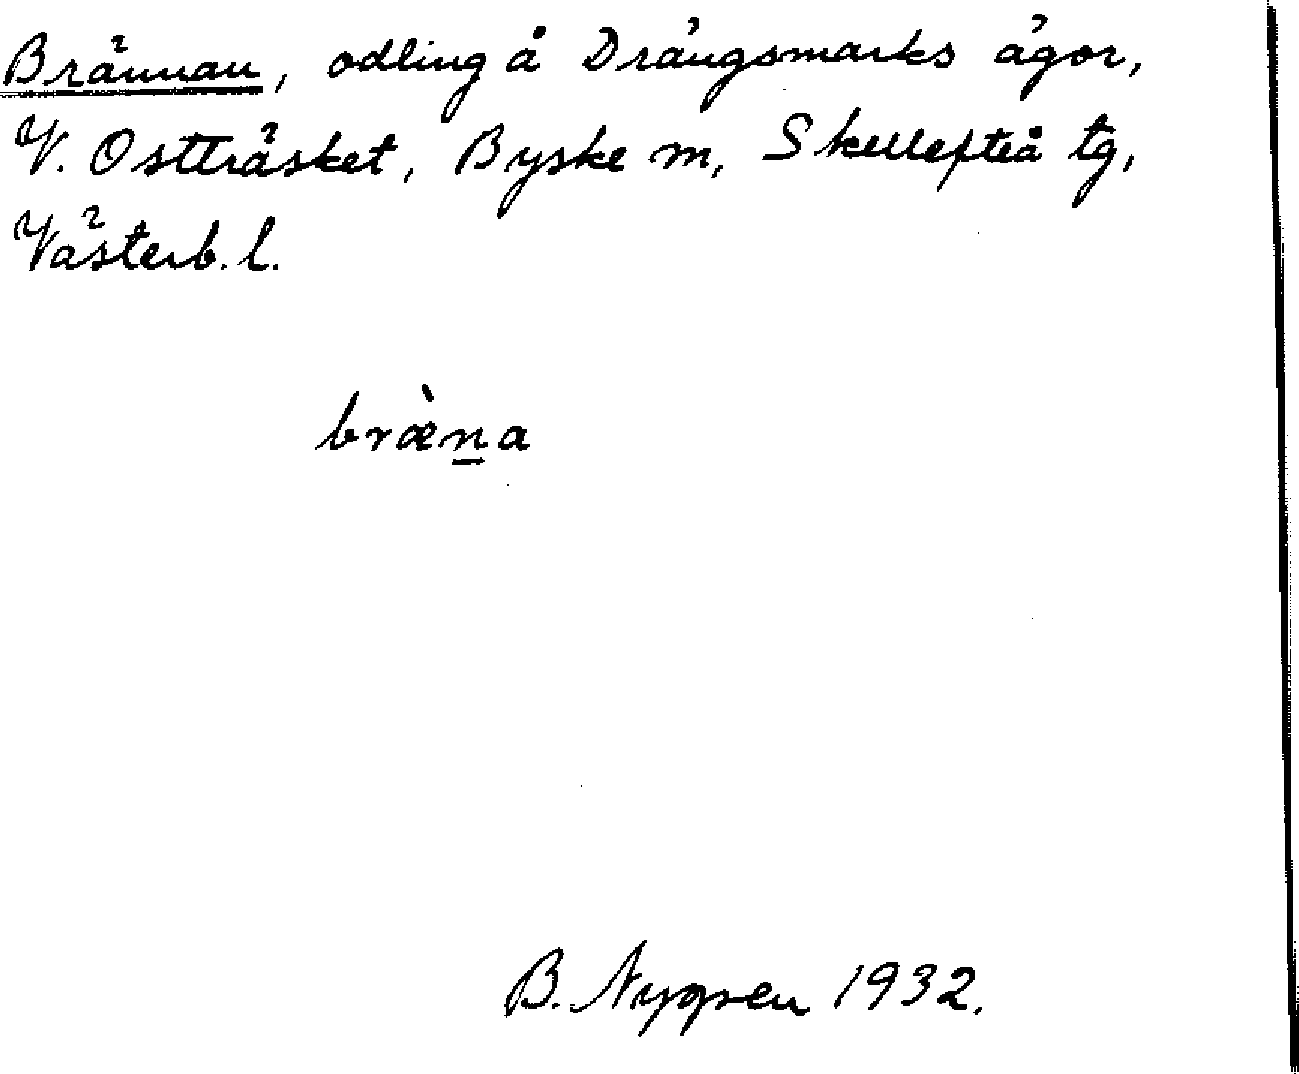 Brännan, odling å Drängsmarks ägor,
V. Ostträsket, Byske sn, Skellefteå tg,
Västerb. l.
bræ̀n̲a
B. Nygren 1932.